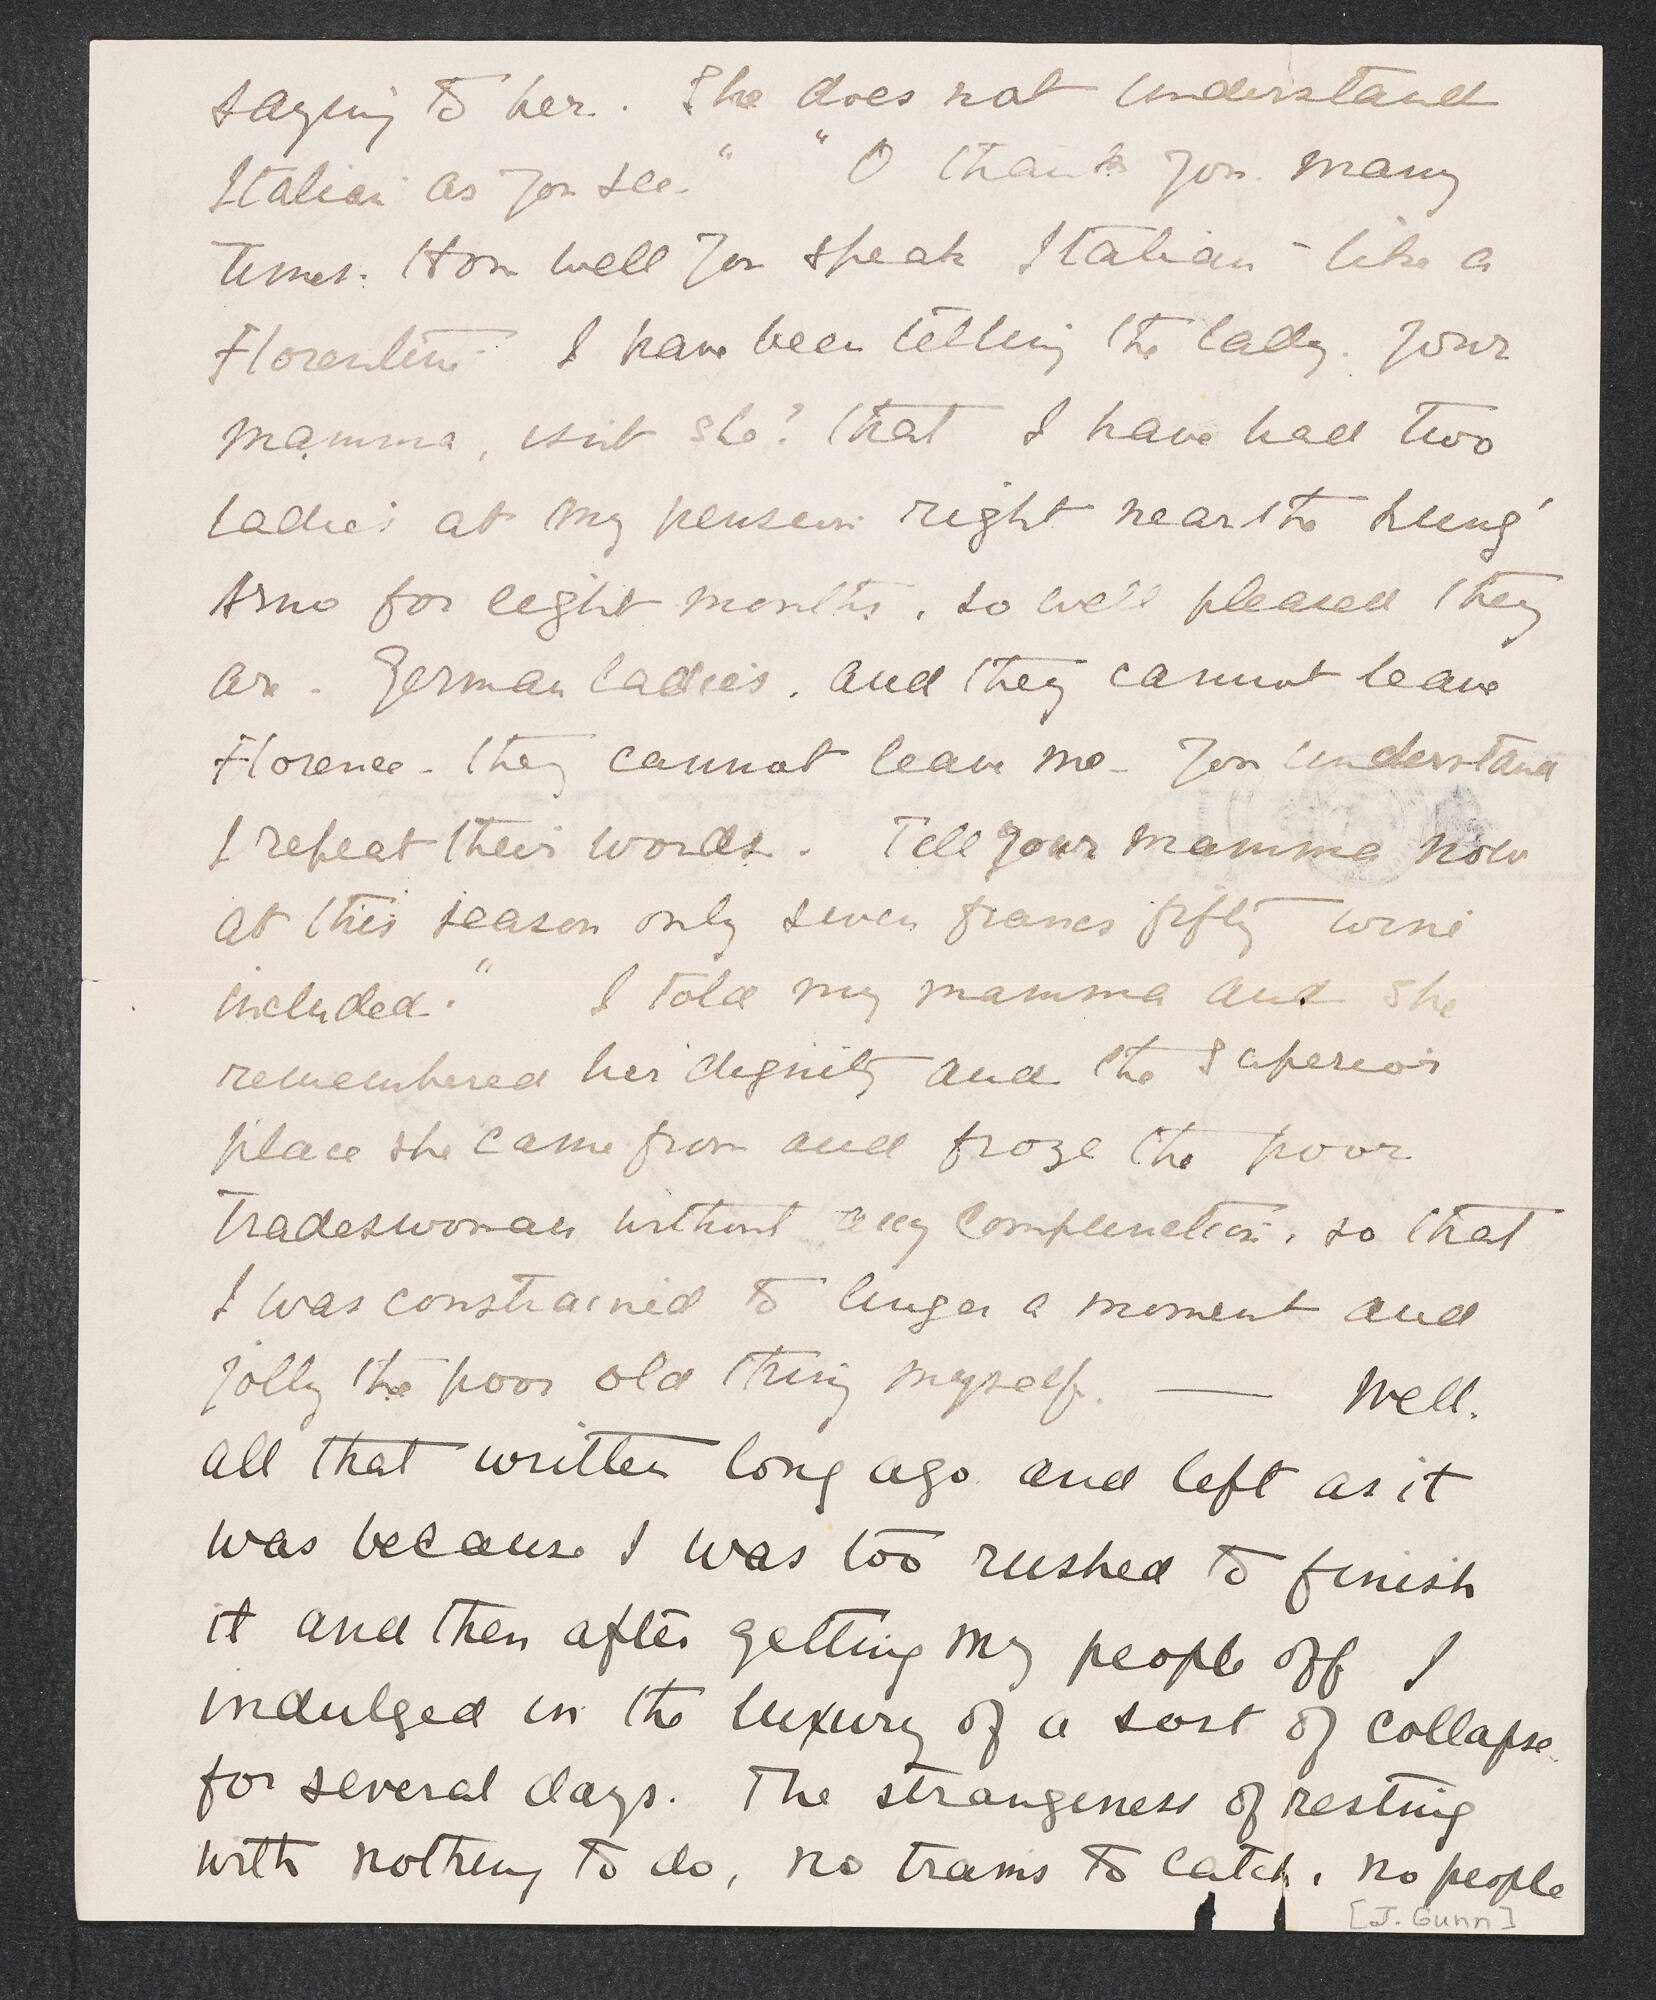 saying to her. She does not understand
Italian as you see." "O thank you many
times. How well you speak Italian - like a
Florentine I have been telling the lady. Your
mamma, isn't she? that I have had two
ladies at my pension right near the Lung'
Arno for eight months, so well pleased they
are. German ladies, and they cannot leave
Florence - they cannot leave me - You understand
I repeat their words. Tell your mamma now
at this season only seven francs fifty wine
included." I told my mamma and she
remembered her dignity and the superior
place she came from and froze the poor
tradeswoman without any compunction, so that
I was constrained to linger a moment and
jolly the poor old thing myself. — Well,
all that written long ago and left as it
was because I was too rushed to finish
it and then after getting my people off I
indulged in the luxury of a sort of collapse
for several days. The strangeness of resting
with nothing to do, no trams to catch, no people
[J. Gunn]